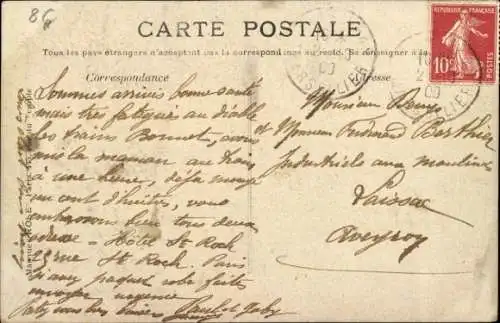 86
CARTE POSTALE
Tous les pays étrangers n'acceptent pas la correspondance au recto. Se renseigner à la
Correspondance
Adresse
RÉPUBLIQUE FRANÇAISE
10c
POSTES
Sommes arrivés bonne santé
mais très fatigués au diable
les trains Bonnet, avons
mis la maman au train
à une heure, déjà mangé
un cent d'huîtres, vous
embrassons bien tous deux
adresse - Hôtel St Roch
25 rue St Roch. Paris
si avez paquet robe faites
envoyer urgence
Paul et Gaby
Monsieur
et Monsieur Barthier
Industriels aux moulins
Laissac
Aveyron